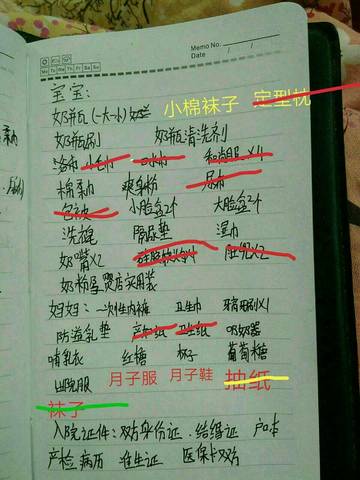 Memo No.
Date / /
Mo Tu We Th Fr Sa Su
宝宝:
奶瓶(一大一小)
小棉袜子 定型枕
奶瓶刷 奶瓶清洗剂
浴布 小毛巾 和尚服×4
棉柔巾 爽身粉 尿布
包被 小脸盆2个 大脸盆2个
洗衣皂 隔尿垫 湿巾
奶嘴×2 肚兜×2
奶粉孕婴店买用装
妈妈: 一次性内裤 卫生巾 牙刷×1
防溢乳垫 产妇纸 卫生纸 吸奶器
哺乳衣 红糖 杯子 葡萄糖
出院服 月子服 月子鞋 抽纸
袜子
入院证件: 双方身份证. 结婚证 户口本
产检病历 准生证 医保卡双方